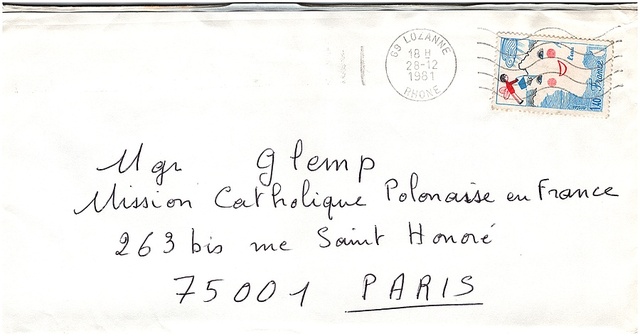 69 LOZANNE
18 H
28-12
1981
RHONE
France
1,40
Mgr Glemp
Mission Catholique Polonaise en France
263 bis rue Saint Honoré
75001 PARIS